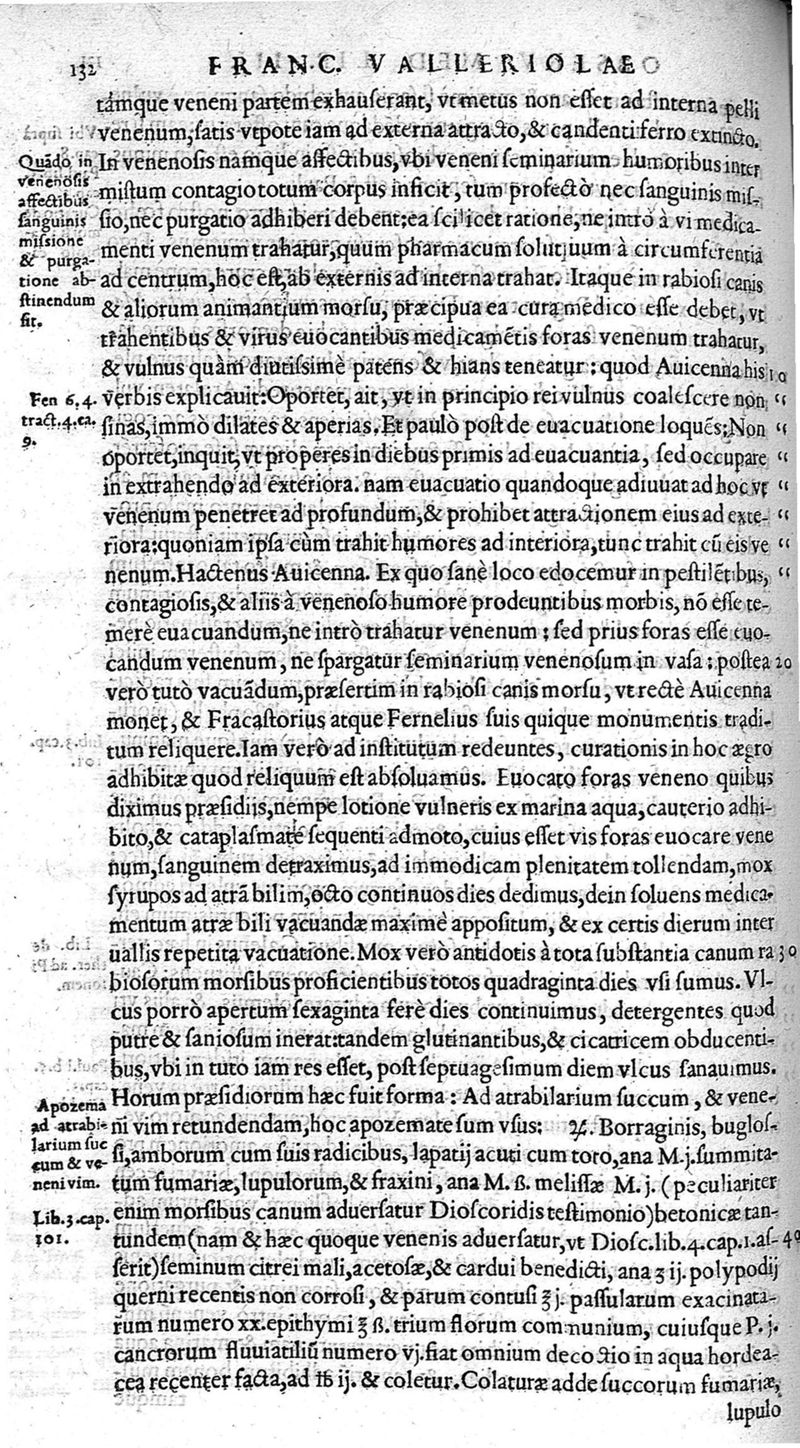 132 FRANC. VALLERIOLAE
tamque veneni partem exhauſerant, vt metus non eſſet ad interna pelli
venenum, ſatis vtpote iam ad externa attracto, & candenti ferro extincto.
Quādo in
venenoſis
affectibus
ſanguinis
miſſione
& purga-
tione ab-
ſtinendum
ſit.
In venenoſis namque affectibus, vbi veneni ſeminarium humoribus inter
miſtum contagio totum corpus inficit, tum profectò nec ſanguinis miſ-
ſio, nec purgatio adhiberi debent; ea ſcilicet ratione, ne intrò à vi medica-
menti venenum trahatur, quum pharmacum ſolutiuum à circumferentia
ad centrum, hoc eſt, ab externis ad interna trahat. Itaque in rabioſi canis
& aliorum animantium morſu, præcipua ea cura medico eſſe debet, vt
trahentibus & virus euocantibus medicamētis foras venenum trahatur,
& vulnus quàm diutiſſimè patens & hians teneatur: quod Auicenna his 10
Fen 6. 4.
tract. 4. ca.
9.
verbis explicauit: Oportet, ait, vt in principio rei vulnus coaleſcere non “
ſinas, immò dilates & aperias. Et paulò poſt de euacuatione loquēs: Non “
oportet, inquit, vt properes in diebus primis ad euacuantia, ſed occupare “
in extrahendo ad exteriora. nam euacuatio quandoque adiuuat ad hoc vt “
venenum penetret ad profundum, & prohibet attractionem eius ad exte- “
riora: quoniam ipſa cùm trahit humores ad interiora, tunc trahit cū eis ve “
nenum. Hactenus Auicenna. Ex quo ſanè loco edocemur in peſtilētibus, “
contagioſis, & aliis à venenoſo humore prodeuntibus morbis, nō eſſe te-
merè euacuandum, ne intrò trahatur venenum; ſed prius foras eſſe euo-
candum venenum, ne ſpargatur ſeminarium venenoſum in vaſa; poſtea 20
verò tutò vacuādum, præſertim in rabioſi canis morſu, vt rectè Auicenna
monet, & Fracaſtorius atque Fernelius ſuis quique monumentis tradi-
tum reliquere. Iam verò ad inſtitutum redeuntes, curationis in hoc ægro
adhibitæ quod reliquum eſt abſoluamus. Euocato foras veneno quibus
diximus præſidijs, nempe lotione vulneris ex marina aqua, cauterio adhi-
bito, & cataplaſmate ſequenti admoto, cuius eſſet vis foras euocare vene
num, ſanguinem detraximus, ad immodicam plenitatem tollendam, mox
ſyrupos ad atrā bilim, octo continuos dies dedimus, dein ſoluens medica-
mentum atræ bili vacuandæ maximè appoſitum, & ex certis dierum inter
uallis repetita vacuatione. Mox verò antidotis à tota ſubſtantia canum ra 30
bioſorum morſibus proficientibus totos quadraginta dies vſi ſumus. Vl-
cus porrò apertum ſexaginta ferè dies continuimus, detergentes quod
putre & ſanioſum inerat: tandem glutinantibus, & cicatricem obducenti-
bus, vbi in tuto iam res eſſet, poſt ſeptuageſimum diem vlcus ſanauimus.
Apozema
ad atrabi-
larium ſuc
cum & ve-
neni vim.
Horum præſidiorum hæc fuit forma: Ad atrabilarium ſuccum, & vene-
ni vim retundendam, hoc apozemate ſum vſus: ℞. Borraginis, bugloſ-
ſi, amborum cum ſuis radicibus, lapatij acuti cum toto, ana M. j. ſummita-
tum fumariæ, lupulorum, & fraxini, ana M. ß. meliſſæ M. j. (peculiariter
Lib. 3. cap.
101.
enim morſibus canum aduerſatur Dioſcoridis teſtimonio) betonicæ tan-
tundem (nam & hæc quoque venenis aduerſatur, vt Dioſc. lib. 4. cap. 1. aſ- 40
ſerit) ſeminum citrei mali, acetoſæ, & cardui benedicti, ana ʒ ij. polypodij
querni recentis non corroſi, & parum contuſi ℥ j. paſſularum exacinata-
rum numero xx. epithymi ℥ ß. trium florum communium, cuiuſque P. j.
cancrorum fluuiatiliū numero vj. fiat omnium decoctio in aqua hordea-
cea recenter facta, ad ℔ ij. & coletur. Colaturæ adde ſuccorum fumariæ,
lupulo